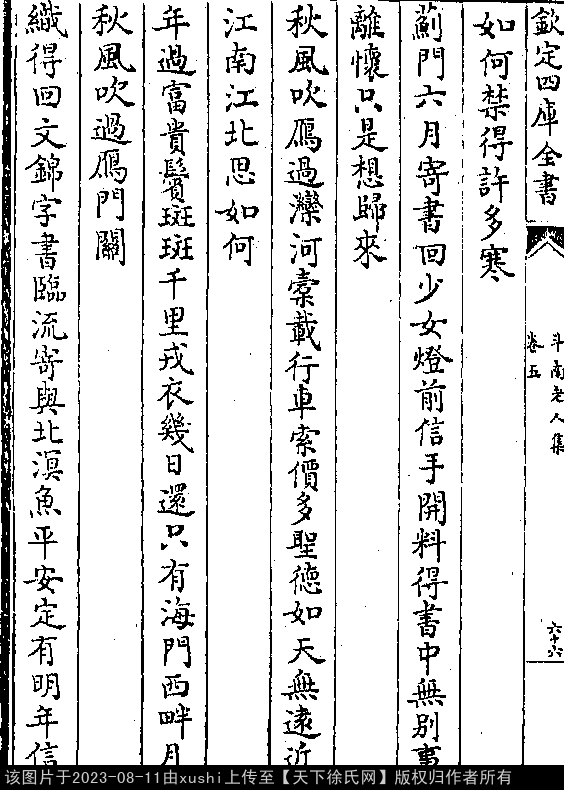 欽定四庫全書
斗南老人集
卷五
六十六
如何禁得許多寒
薊門六月寄書回少女燈前信手開料得書中無别事
離懷只是想歸來
秋風吹鴈過灤河槖載行車索價多聖德如天無遠近
江南江北思如何
年過富貴鬢斑斑千里戎衣幾日還只有海門西畔月
秋風吹過鴈門關
織得回文錦字書臨流寄與北溟魚平安定有明年信
该图片于2023-08-11由xushi上传至【天下徐氏网】版权归作者所有